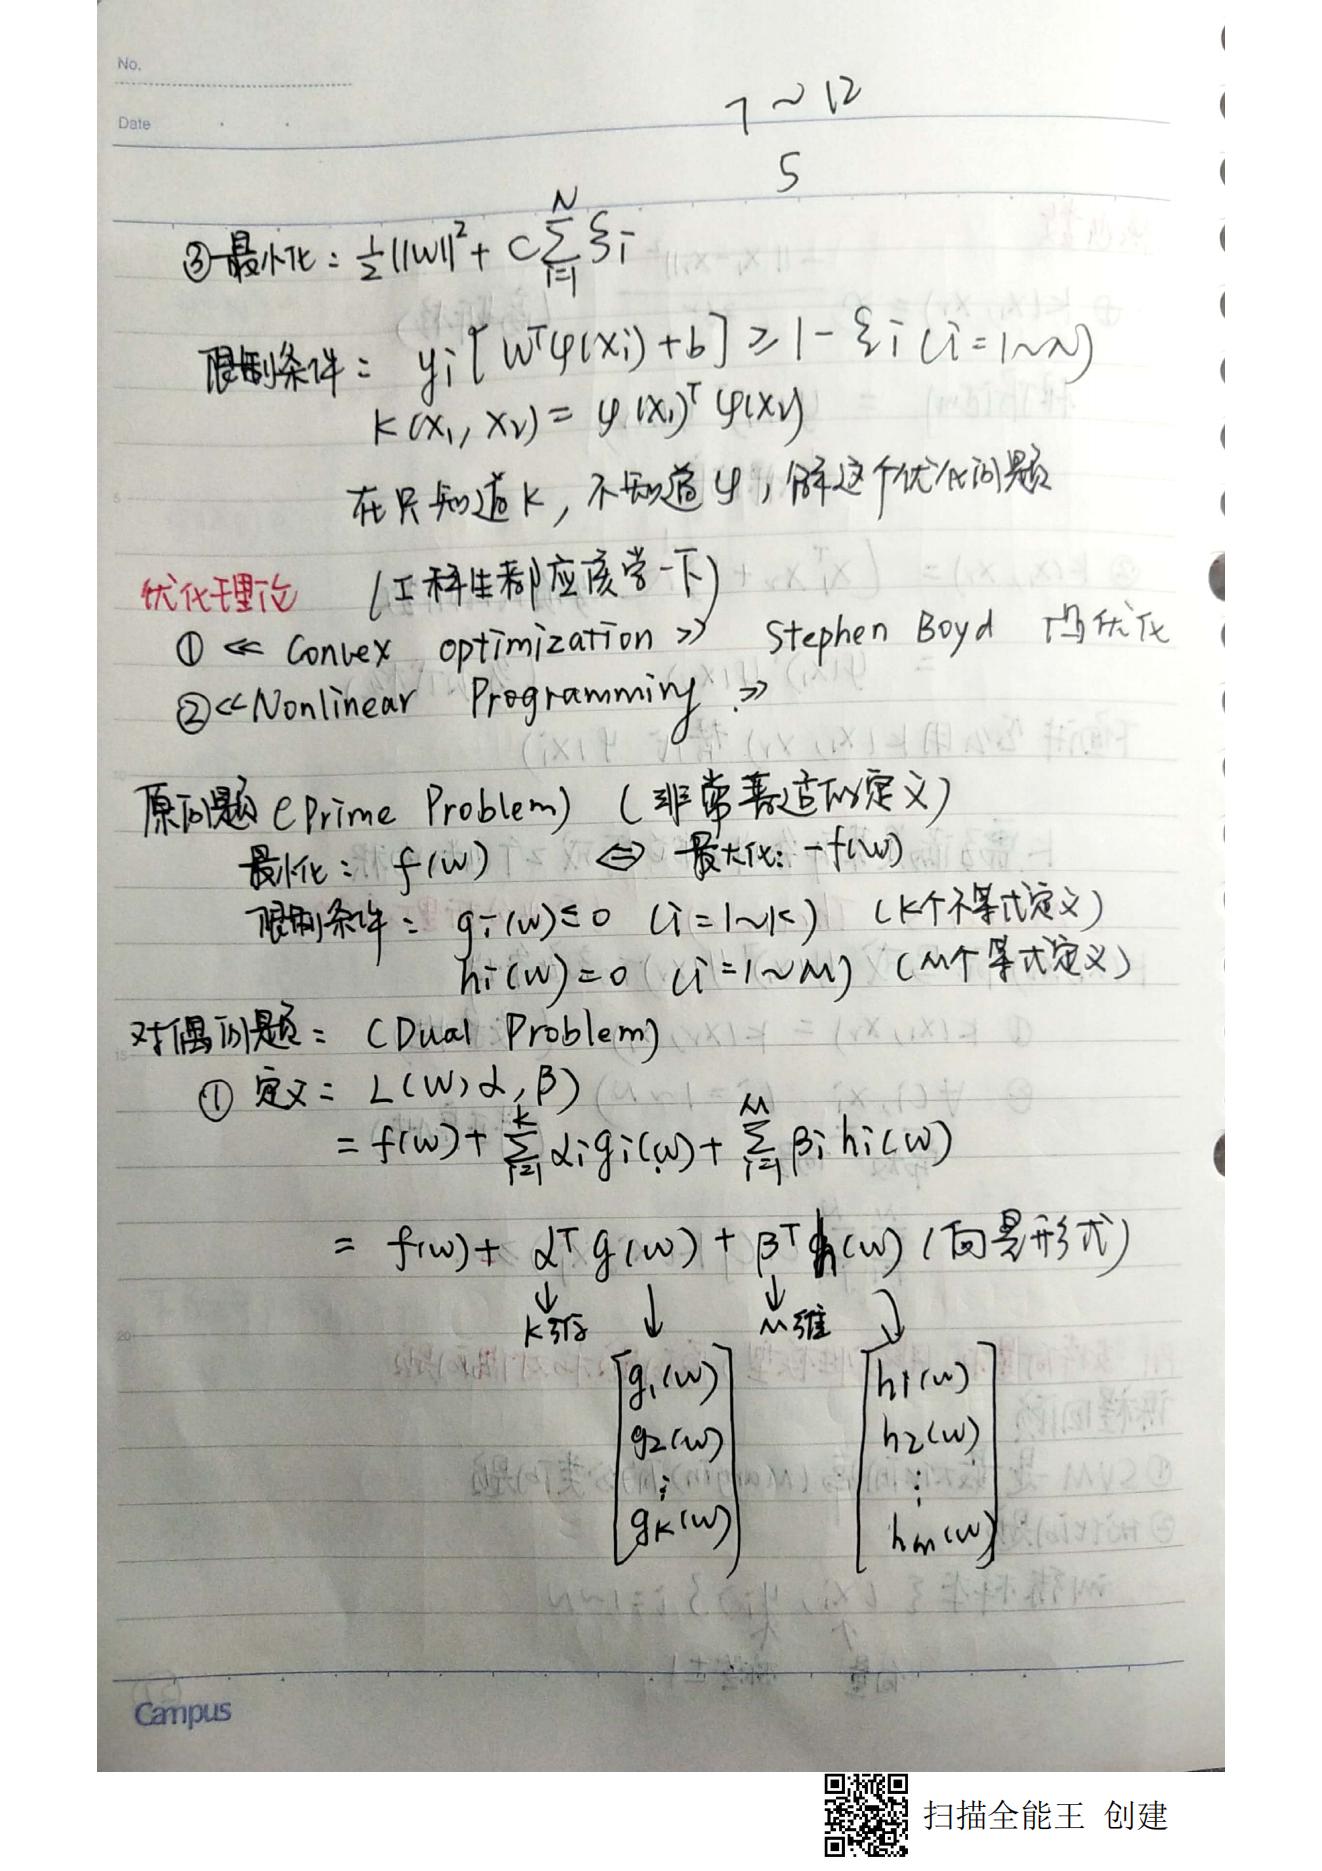 No.
Date
7~12
5
③最小化: ½||W||² + C∑_{i=1}^{N} ξi
限制条件: yi[WᵀΨ(Xi)+b] ≥ 1-ξi (i=1~N)
K(X₁, X₂) = φ(X₁)ᵀ φ(X₂)
在只知道K, 不知道φ, 解这个优化问题
优化理论 (工科生都应该学一下)
① 《Convex optimization》 Stephen Boyd 凸优化
②《Nonlinear Programming》
原问题 (Prime Problem) (非常普适的定义)
最小化: f(w) ⇔ 最大化: -f(w)
限制条件: gi(w)≤0 (i=1~K) (K个不等式定义)
hi(w)=0 (i=1~M) (M个等式定义)
对偶问题: (Dual Problem)
① 定义: L(w, α, β)
= f(w) + ∑_{i=1}^{K} αi gi(w) + ∑_{i=1}^{M} βi hi(w)
= f(w) + αᵀ g(w) + βᵀ h(w) (向量形式)
↓ ↓ ↓ ↓
K维 M维
g₁(w) h1(w)
g2(w) h2(w)
⋮ ⋮
gK(w) hm(w)
Campus
扫描全能王 创建